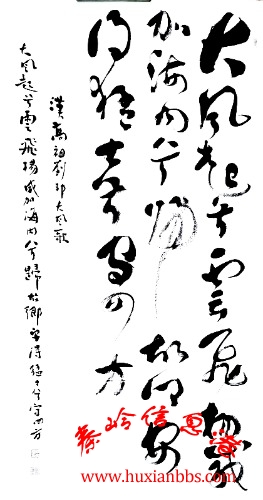 大風起兮雲飛揚威
加海内兮歸故鄉安
得猛士兮守四方
漢高祖劉邦大風歌
大風起兮雲飛揚威加海内兮歸故鄉安得猛士兮守四方
秦岭信息港
www.huxianbbs.com